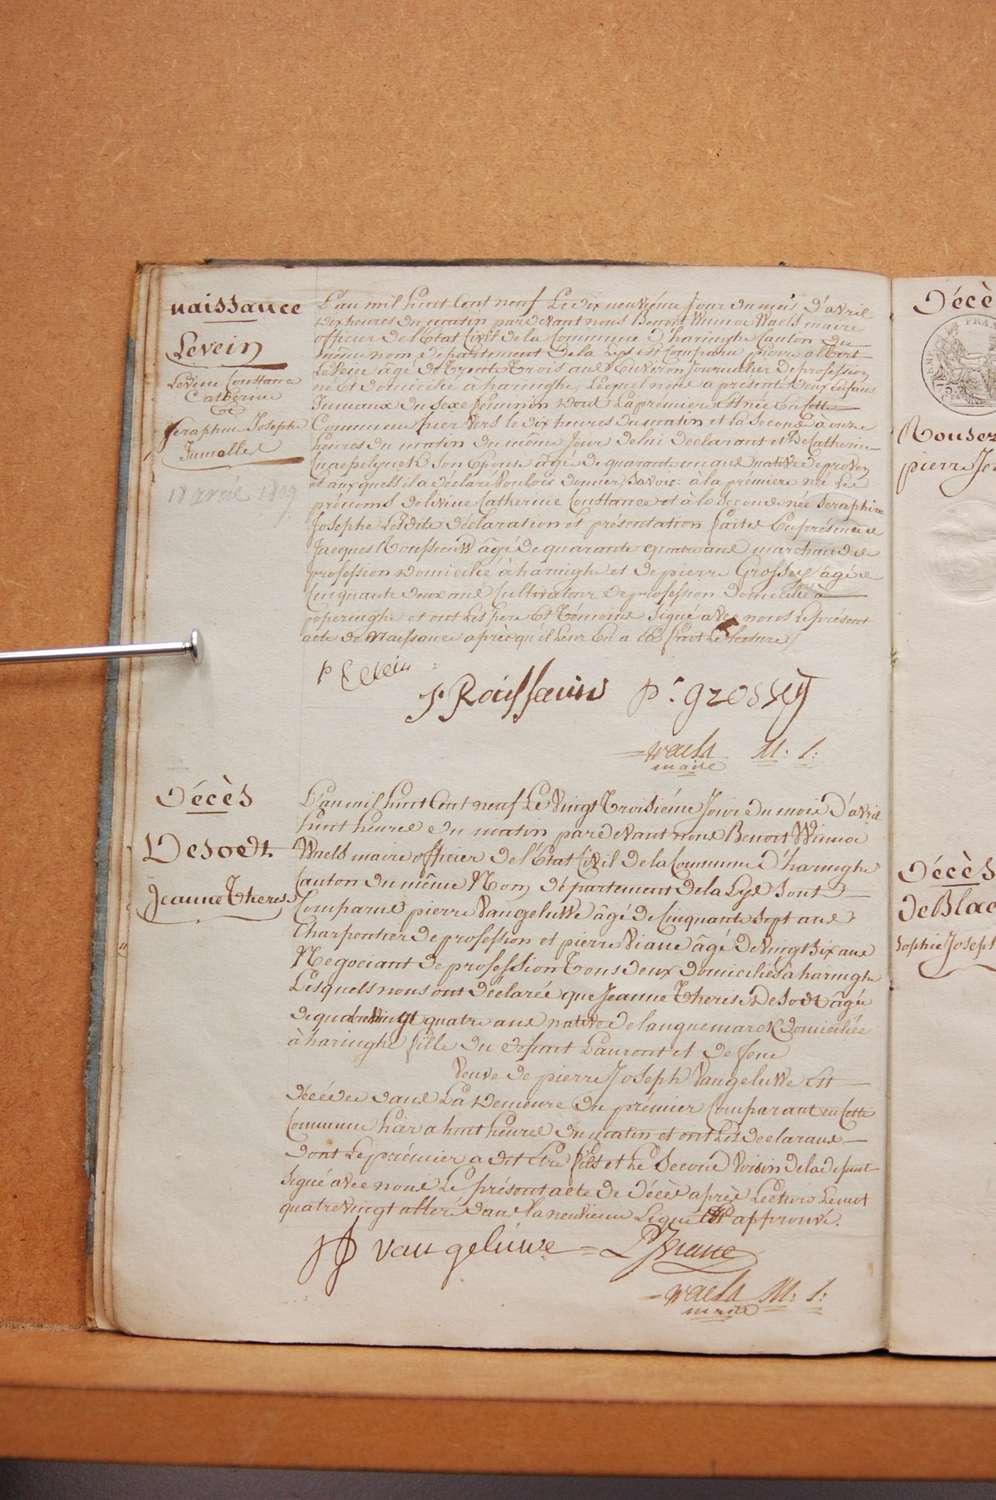 naissance
Levein
Levine Constance
Catherine
&
Seraphine Josephe
Jumelles
18 avril 1809
L'an mil huit Cent neuf Le dix neuvième Jour du mois D'avril
dix heures du matin pardevant nous Benoit Winnoc Waels maire
officier de l'Etat Civil de la Commune d'haringhe Canton du
même nom département de la Lys est Comparu pierre albert
Levein âgé de trente trois ans Environ Journalier de profession
né et domicilié à haringhe, Lequel nous a présenté deux Enfans
Jumeaux du Sexe féminin dont La première est née En cette
Commune hier vers le dix heures du matin et la Seconde à onze
heures du matin du même Jour de lui déclarant et de Catherine
son Epouse âgé de quarante un ans native de proven
et auxquels il a déclaré vouloir donner Savoir: à la première née Les
prénoms de levine Catherine Constance et à la Seconde née Seraphine
Josephe Lesdite déclaration et présentation faite En présence de
Jacques Rousseuw âgé de quarante quatre ans marchand de
profession domicilié à haringhe et de pierre Grossey âgé de
Cinquante deux ans Cultivateur de profession domicilié à
poperinghe et ont Les père Et Témoins Signé avec nous Le présent
acte de Naissance après qu'il leur En a été fait Lecture
P Levein
J. Raissauw P. grossey
waels M. S:
maire
Décès
Desoedt
Jeanne Therese
L'an mil huit Cent neuf Le vingt troisième Jour du mois D'avril
huit heures du matin pardevant nous Benoit Winnoc
Waels maire officier de l'Etat Civil de la Commune D'haringhe
Canton du même Nom, département de la Lys Sont
Comparus pierre Vangeluwe âgé de Cinquante Sept ans
Charpentier de profession et pierre Viane âgé de vingt six ans
Négociant de profession Tous deux domiciliés à haringhe
Lesquels nous ont déclaré que Jeanne Therese Desodt âgée
de quatre vingt quatre ans native de languemarck domiciliée
à haringhe fille du défunt Laurent et de feue
Veuve de pierre Joseph Vangeluwe Est
décédée dans La demeure du premier Comparant en Cette
Commune hier a huit heures du matin et ont Les déclarans
dont Le premier a dit Etre fils et Le Second Voisin de la défunte
Signé avec nous Le présent acte de décès après Lecture Le mot
quatre vingt altéré dans la neuvième Ligne approuvé.
vangeluwe = P Viane
waels M. S:
maire
Décès
Rousez
pierre Je
Décès
de Blac
Sophie Joseph